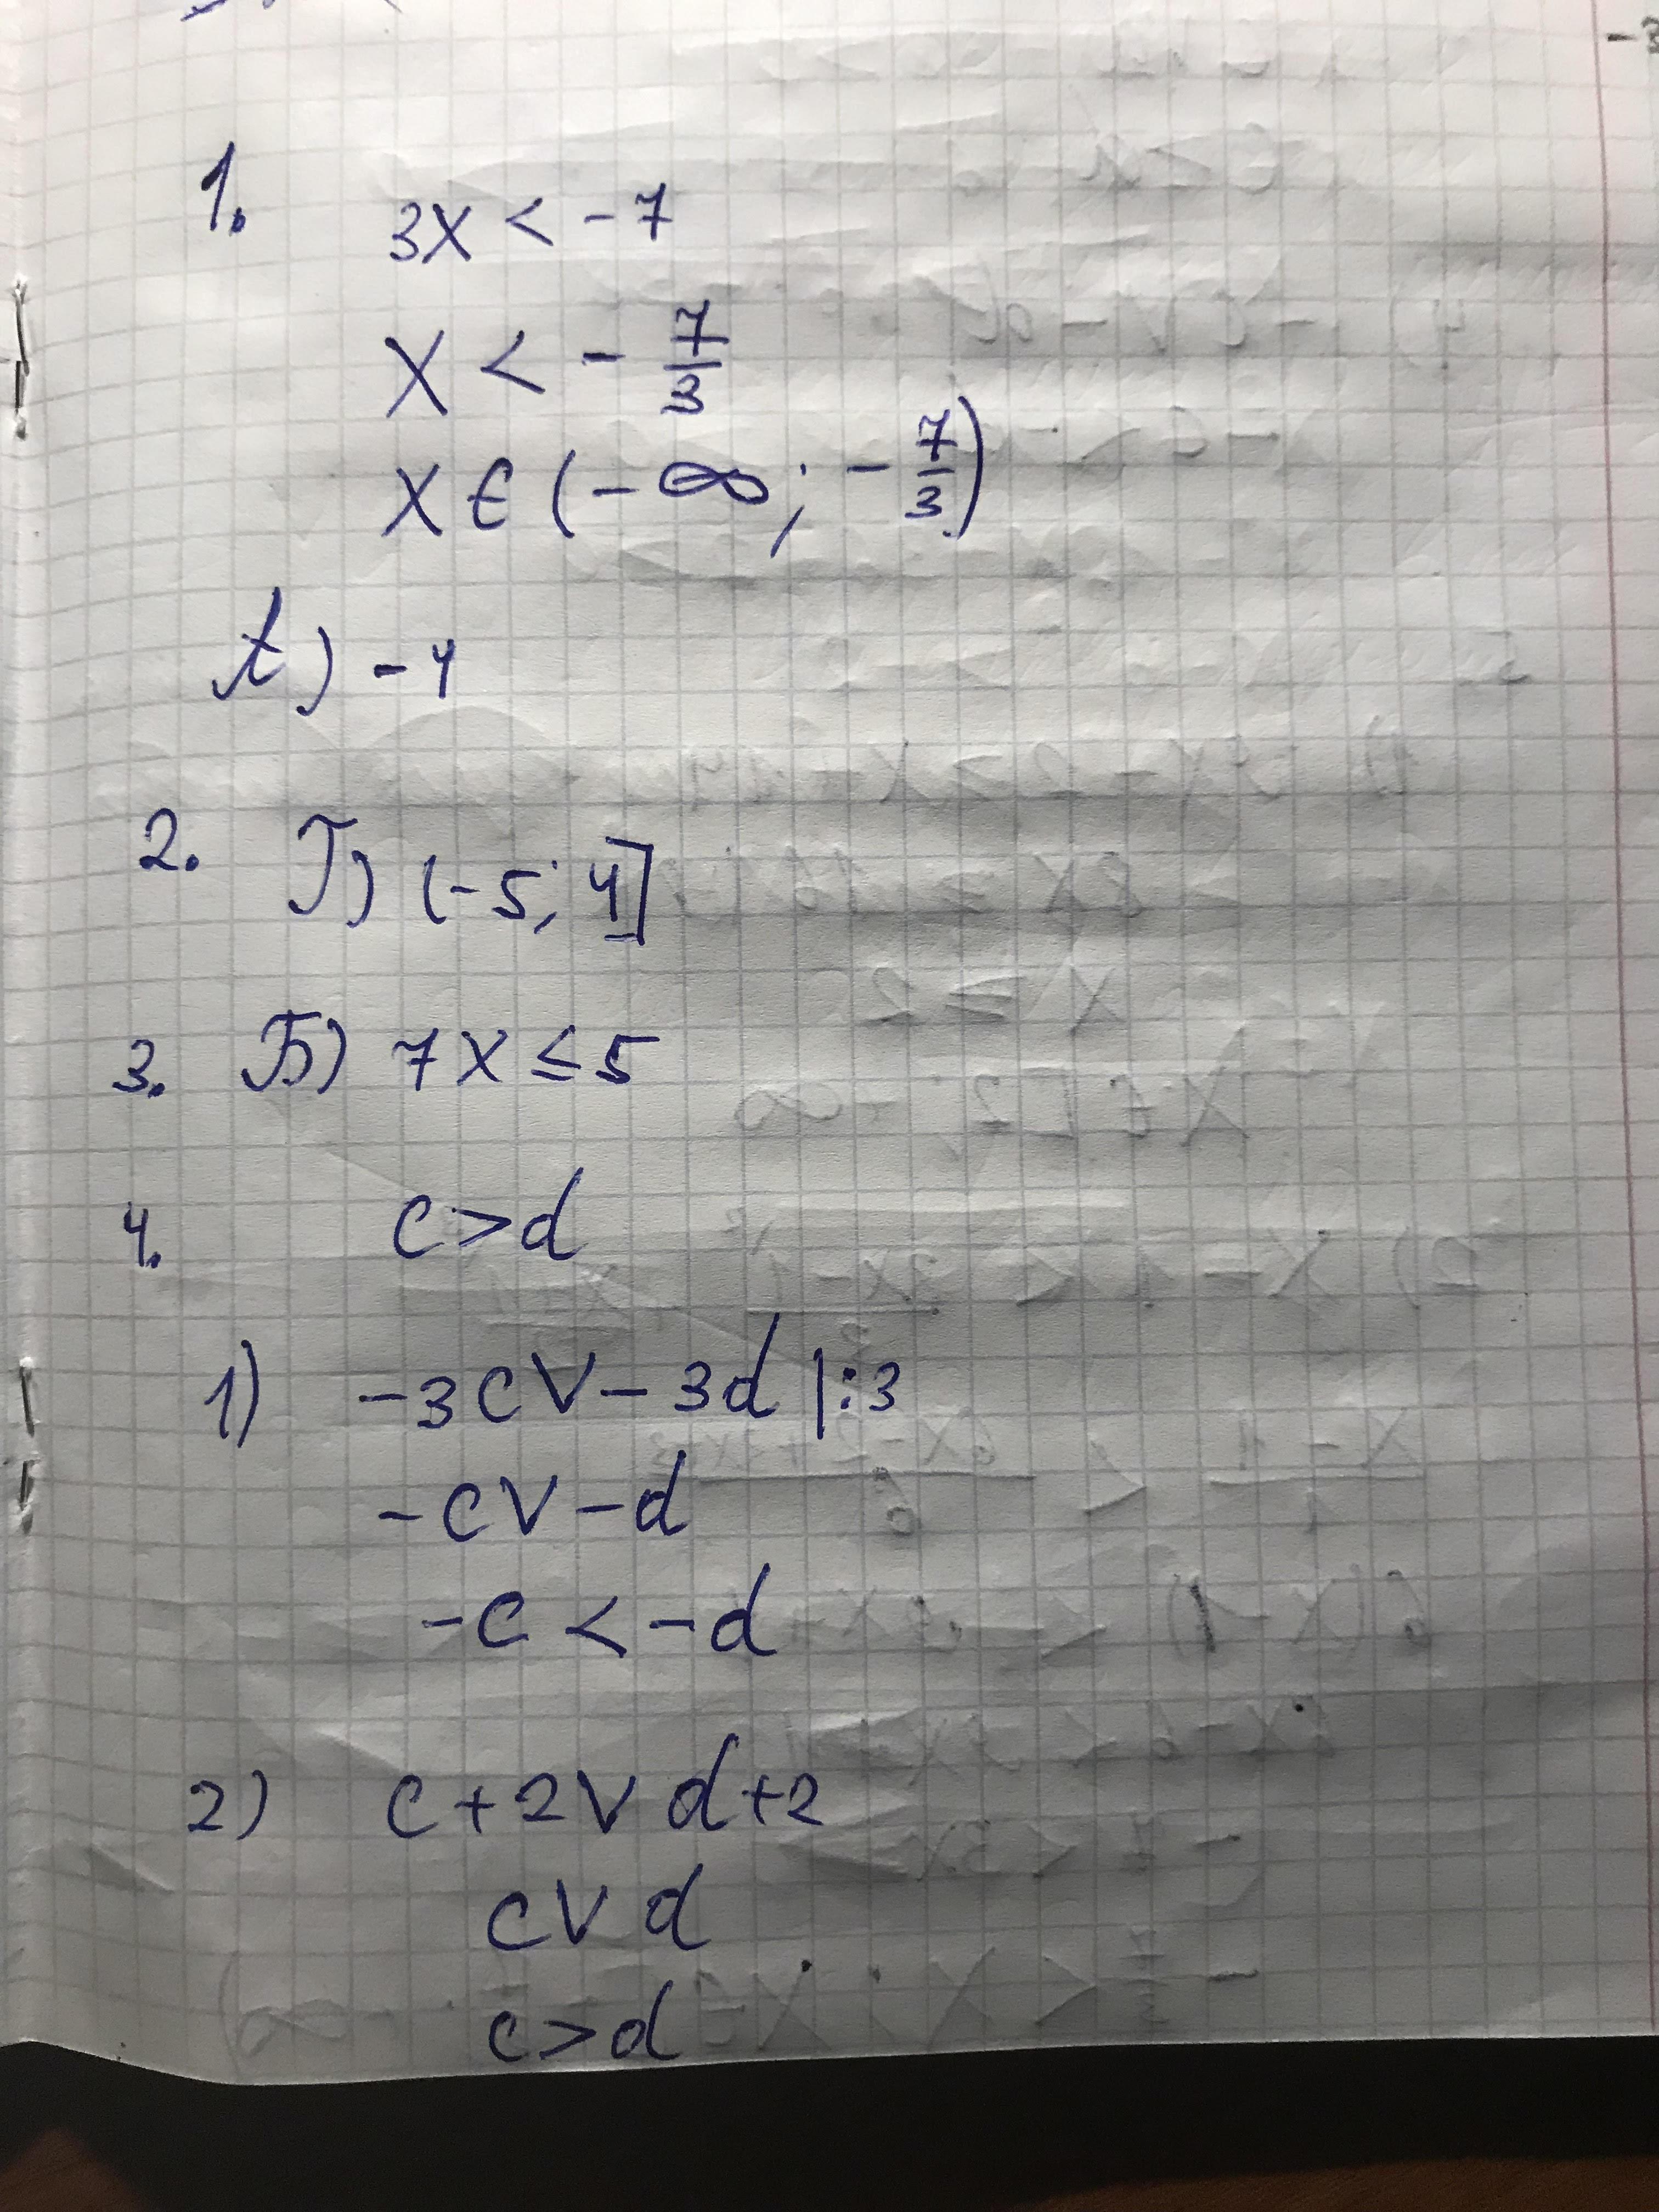 1. 3x < -7
x < - 7/3
x ∈ (-∞; - 7/3)
А) -4
2. Г) (-5; 4]
3. Б) 7x ≤ 5
4. c > d
1) -3c V -3d |:3
-c V -d
-c < -d
2) c+2 V d+2
c V d
c > d